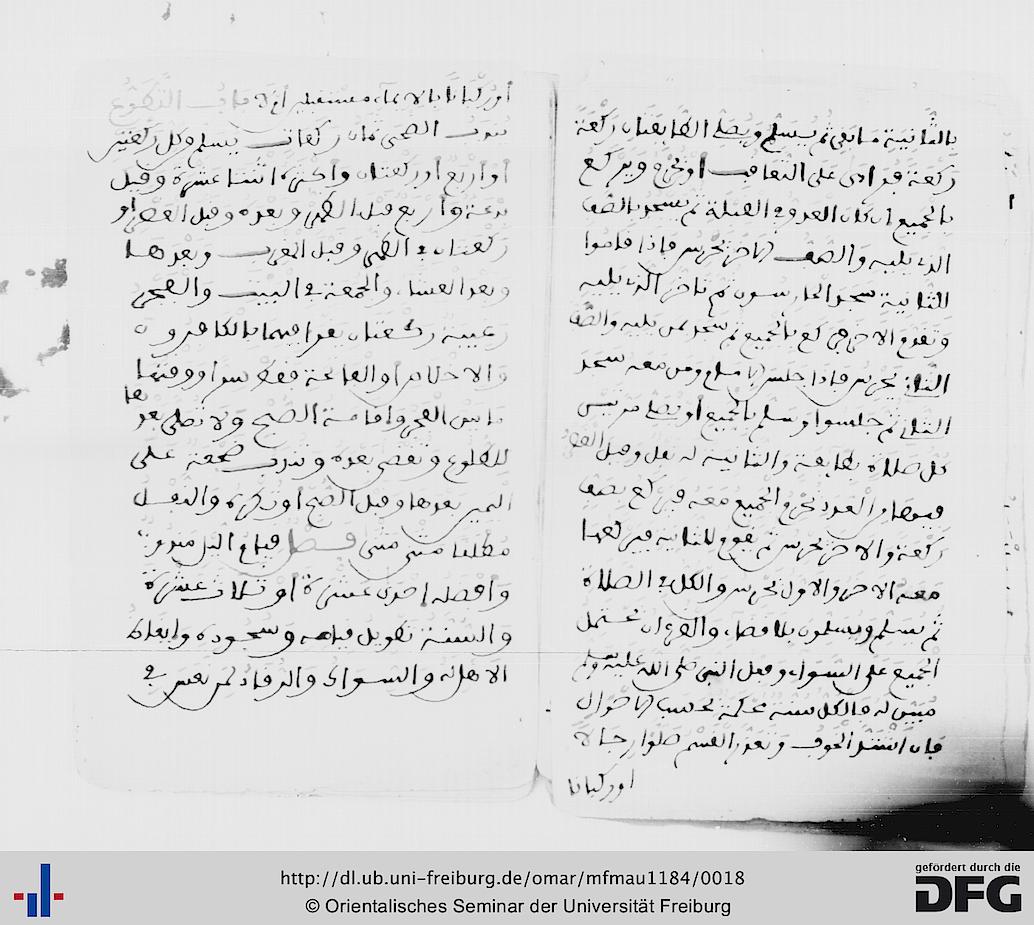 بالثانية ما بقي ثم يسلم ويصلي الطايفتان ركعة
ركعة فرادى على التعاقب أو تحرم ويركع
بالجميع ان كان العدو في القبلة ثم يسجد بالصف
الذي يليه والصف الاخر يحرس فإذا قاموا
للثانية سجد الحارسون ثم تأخر الذي يليه
وتقدم الاخر فيركع بالجميع ثم يسجد بمن يليه والصف
الثاني يحرس فإذا جلس الامام ومن معه سجد
الثاني ثم جلسوا وسلم بالجميع أو يصلي مرتين
كل صلاة بطايفة والثانية له نفل وقبل
العدو تحرم الجميع معه فيركع بصف
ركعة والاخر يحرس ثم يقوم للثانية فيركعها
معه الاخر والاول يحرس والكل في الصلاة
ثم يسلم ويسلمون بلا قضاء
الجميع على السواء وفعل النبي صلى الله عليه وسلم
مبين له فالكل سنة محكمة بحسب الاحوال
فان اشتد الخوف وتعذر القسم صلوا رجالا
او ركبانا
أو ركبانا بالايماء مستقبلي أو لا
ندب الضحى ثمان ركعات يسلم من كل ركعتين
أو أربع أو ركعتان وأكثره اثنتا عشرة وقيل
بدعة وأربع قبل الظهر وبعده وقبل العصر أو
ركعتان في الظهر وقبل المغرب وبعدها
وبعد العشاء والجمعة في البيت والفجر
رغيبة ركعتان يقرأ فيهما بالكافرون
والاخلاص أو الفاتحة فقط سرا ووقتها
ما بين الفجر واقامة الصبح ولا تصلى بعدها
للطلوع وتقضى بعده وتندب ضجعة على
اليمين بعدها وقبل الصبح أو تكره والنفل
مطلقا مثنى مثنى فصل قيام الليل مندوب
وأفضله إحدى عشرة أو ثلاث عشرة
والسنة تطويل قيامه وسجوده وايقاظ
الاهل له والسواك والرقاد لمن نعس في
http://dl.ub.uni-freiburg.de/omar/mfmau1184/0018
© Orientalisches Seminar der Universität Freiburg
gefördert durch die
DFG